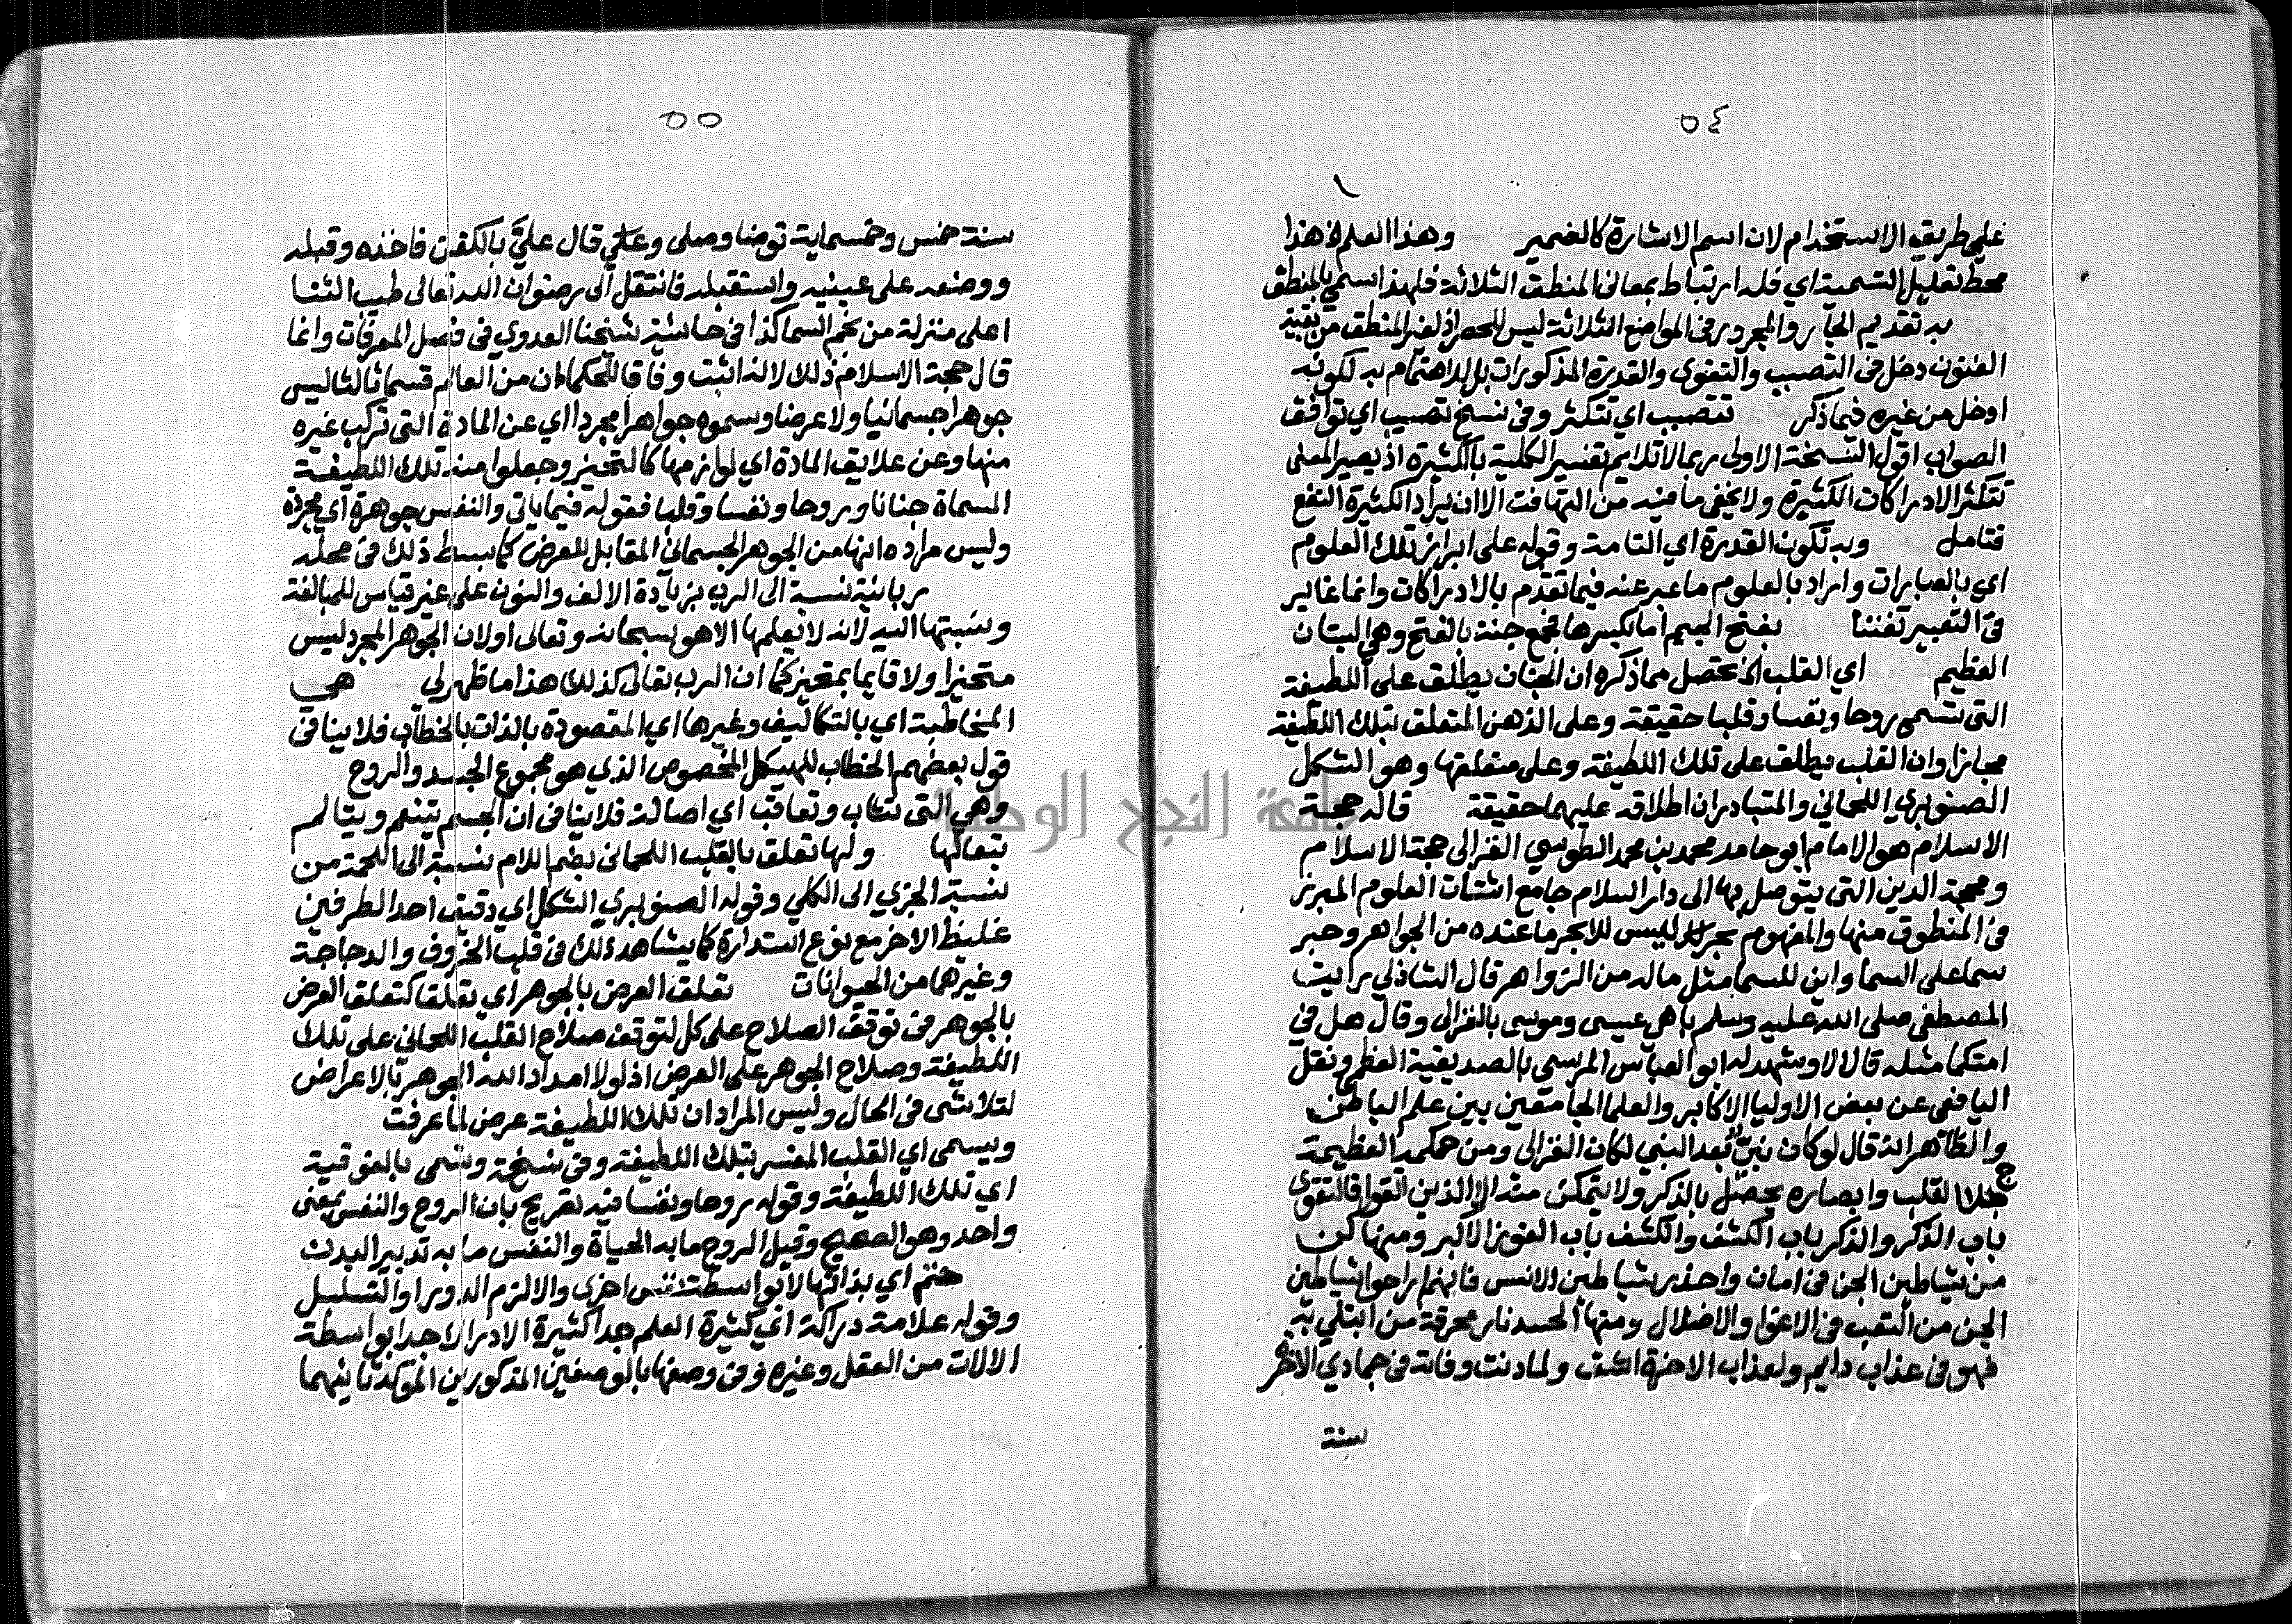 ٥٤
على طريقه الاستخدام لان اسم الاشارة كالضمير وهذا العلم في هذا
محط تعليل التسمية اي فله ارتباط بمعاني المنطق الثلاثة فلهذا اسمي بالمنطق
به تقديم الجار والمجرور في المواضع الثلاثة ليس للحصر اذ لغير المنطق من بقية
الفنون دخل في التصبب والتقوى والقدرة المذكورات بل للاهتمام به لكونه
ادخل من غيره فيما ذكر تتصبب اي تتكثر وفي نسخ تصيب اي توافق
الصواب اقول النسخة الاولى ربما لا تلايم تفسير الكلية بالكثيرة اذ يصير المعنى
تتكثر الادراكات الكثيرة ولا يخفى ما فيه من التهافت الا ان يراد الكثيرة النفع
فتامل وبه تكون القدرة اي التامة وقوله على ابراز تلك العلوم
اي بالعبارات واراد بالعلوم ما عبر عنه فيما تقدم بالادراكات وانما غاير
في التعبير تفننا بفتح الجيم اما بكسرها فجمع جنة بالفتح وهي البستان
العظيم اي القلب الخ تحصل مما ذكره ان الجنان يطلق على اللطيفة
التي تسمى روحا ونفسا وقلبا حقيقة وعلى الذهن المتعلق بتلك اللطيفة
مجازا وان القلب يطلق على تلك اللطيفة وعلى متعلقها وهو الشكل
الصنوبري اللحماني والمتبادر ان اطلاقه عليهما حقيقة قاله حجة
الاسلام هو الامام ابو حامد محمد بن محمد الطوسي الغزالى حجة الاسلام
ومحجة الدين التي يتوصل بها الى دار السلام جامع اشتات العلوم المبرز
في المنطوق منها والمفهوم بحر ليس للابحر ما عنده من الجواهر وحبر
سما على السما واين للسما مثل ماله من الزواهر قال الشاذلي رايت
المصطفى صلى الله عليه وسلم باهي عيسى وموسى بالغزالى وقال هل في
امتكما مثله قالا لا وشهد له ابو العباس المرسي بالصديقية العظمى ونقل
اليافعي عن بعض الاوليا الاكابر والعلما الجامعين بين علم الباطن
والظاهر انه قال لو كان نبي بعد النبي لكان الغزالى ومن حكمه العظيمة
جلا القلب وابصاره يحصل بالذكر ولا يتمكن منه الا الذين اتقوا فالتقوى
باب الذكر والذكر باب الكشف والكشف باب الفوز الاكبر ومنها كن
من شياطين الجن في امان واحذر شياطين الانس فانهم اراحوا شياطين
الجن من التعب في الاغوا والاضلال ومنها الحسد نار محرقة من ابتلي به
فهو في عذاب دايم ولعذاب الاخرة اشد ولما دنت وفاته في جمادي الاخرة
سنة
٥٥
سنة خمس وخمسماية توضا وصلى وقال علي بالكفن فاخذه وقبله
ووضعه على عينيه واستقبله فانتقل الى رضوان الله تعالى طيب الثنا
اعلى منزلة من نجم السما كذا في حاشية شيخنا العدوي في فصل المعرفات وانما
قال حجة الاسلام ذلك لانه اثبت وفاقا للحكما ان من العالم قسما ثالثا ليس
جوهرا جسمانيا ولا عرضا وسموه جواهرا مجردا اي عن المادة التي تركب غيره
منها وعن علايق المادة اي لوازمها كالتحيز وجعلوا منه تلك اللطيفة
المسماة جنانا وروحا ونفسا وقلبا فقوله فيما ياتي والنفس جوهرة اي مجردة
وليس مراده انها من الجوهر الجسماني المقابل للعرض كما بسط ذلك في محله
ربانية نسبة الى الرب بزيادة الالف والنون على غير قياس للمبالغة
ونسبتها اليه لانه لا يعلمها الا هو سبحانه وتعالى او لان الجوهر المجرد ليس
متحيزا ولا قايما بمتحيز كما ان الرب تعالى كذلك هذا ما ظهر لي هي
المخاطبة اي بالتكاليف وغيرها اي المقصودة بالذات بالخطاب فلا ينافي
قول بعضهم الخطاب للهيكل المخصوص الذي هو مجموع الجسد والروح
وهي التي تثاب وتعاقب اي اصالة فلا ينافي ان الجسم يتنعم ويتالم
تبعا لها ولها تعلق بالقلب اللحماني بضم اللام نسبة الى اللحمة من
نسبة الجزي الى الكلي وقوله الصنوبري الشكل اي دقيق احد الطرفين
غليظ الاخر مع نوع استدارة كما يشاهد ذلك في قلب الخروف والدجاجة
وغيرها من الحيوانات تعلق العرض بالجوهر اي تعلقا كتعلق العرض
بالجوهر في توقف الصلاح على كل لتوقف صلاح القلب اللحماني على تلك
اللطيفة وصلاح الجوهر على العرض اذ لولا امداد الله الجوهر بالاعراض
لتلاشى في الحال وليس المراد ان تلك اللطيفة عرض لما عرفت
ويسمى اي القلب المفسر بتلك اللطيفة وفي نسخة وتسمى بالفوقية
اي تلك اللطيفة وقوله روحا ونفسا فيه تصريح بان الروح والنفس بمعنى
واحد وهو الصحيح وقيل الروح ما به الحياة والنفس ما به تدبير البدن
اي بذاتها لا بواسطة نفس اخرى والا لزم الدور او التسلسل
وقوله علامة دراكة اي كثيرة العلم جدا كثيرة الادراك جدا بواسطة
الالات من العقل وغيره وفي وصفها بالوصفين المذكورين المؤكد تانيثهما
جامعة النجاح الوطنية